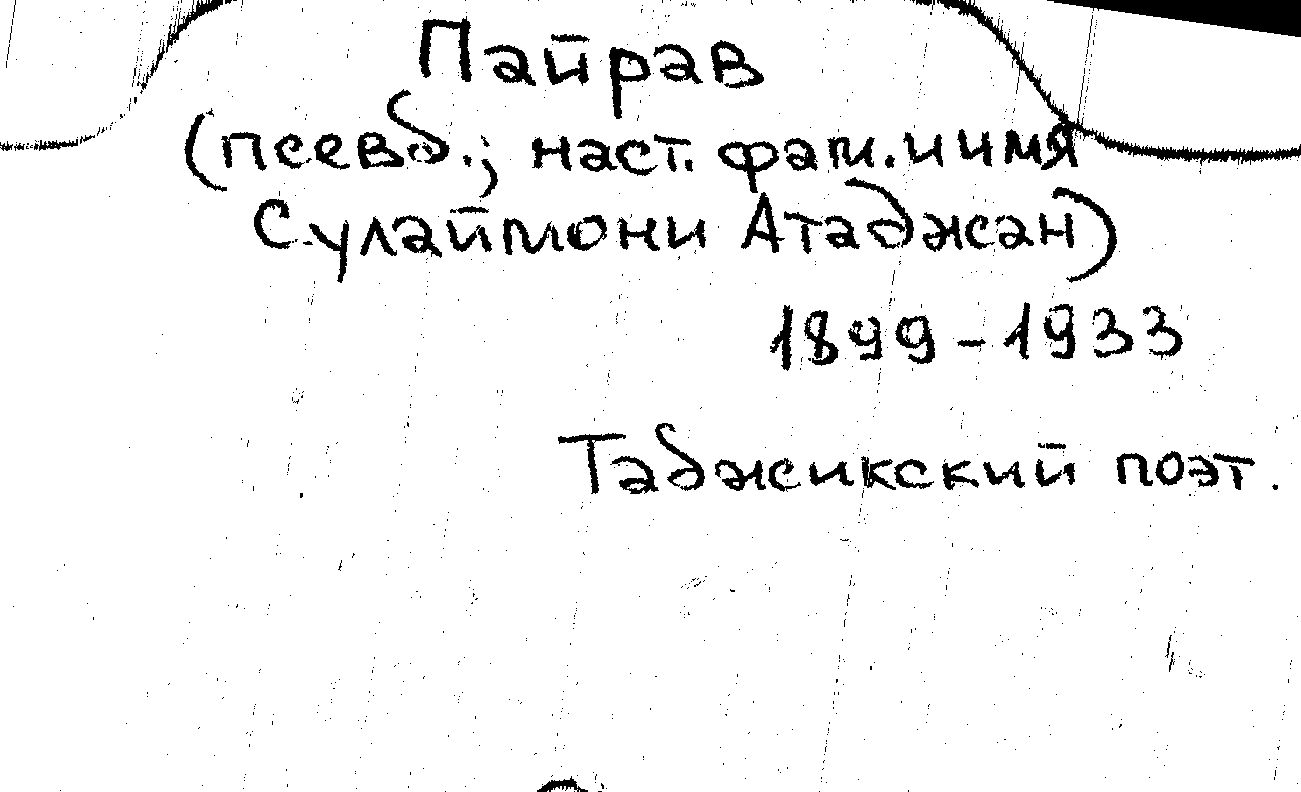 Пайрав
(псевд.; наст. фам. и имя
Сулаймони Атаджан)
1899-1933
Таджикский поэт.